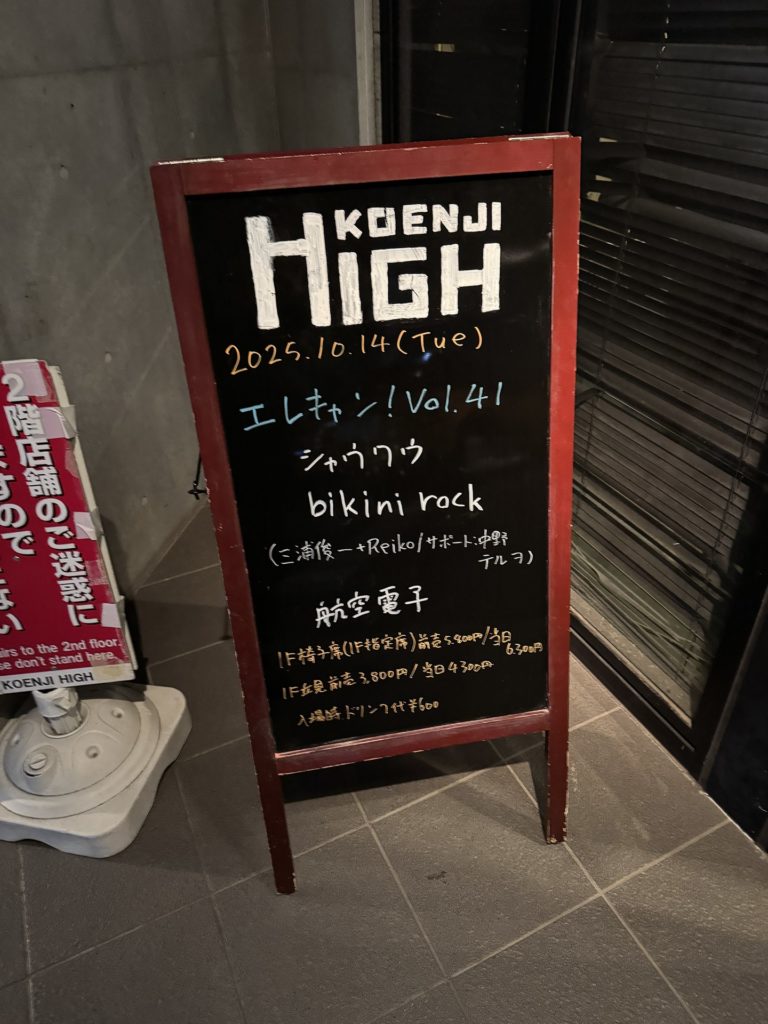 KOENJI
HIGH
2025.10.14(Tue)
エレキャン！Vol.41
シャウワウ
bikini rock
(三浦俊一+Reiko/サポート:中野
テルヲ)
航空電子
1F椅子席(1F指定席)前売5,800円/当日
6,300円
1F立見前売3,800円/当日4300円
入場時ドリンク代¥600
2階店舗のご迷惑に
ますので
ない
airs to the 2nd floor.
se don't stand here
KOENJI HIGH